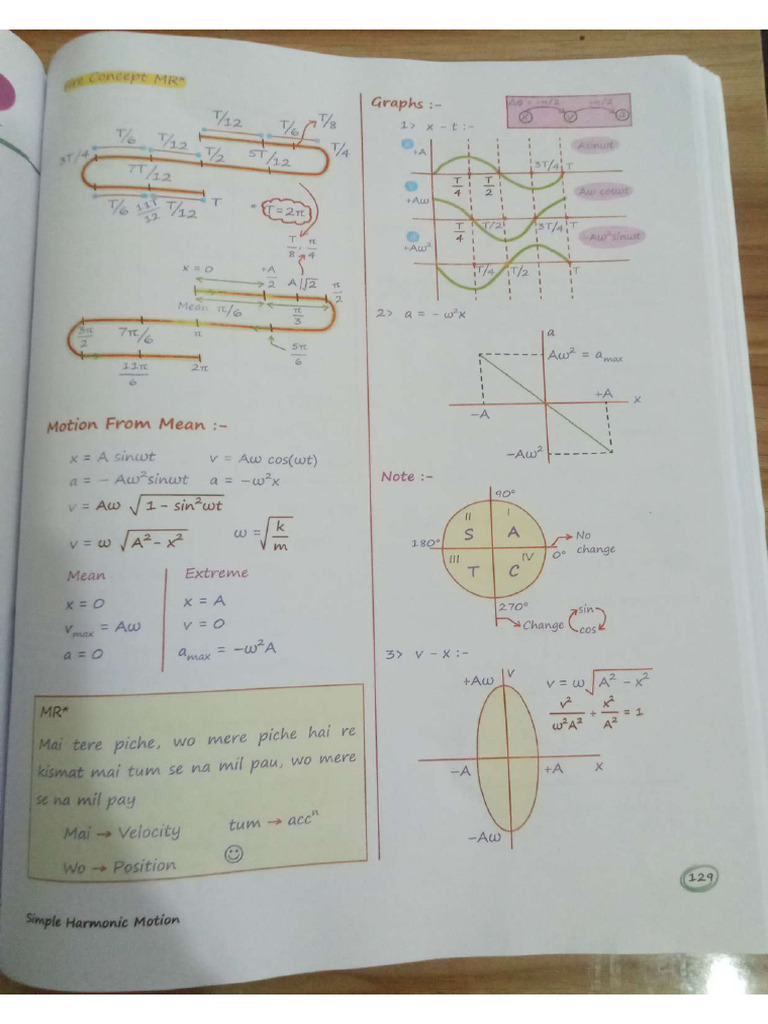 Concept MR*
T/12
T/6
T/8
T/6
T/12
T/2
5T/12
T/4
3T/4
7T/12
T/6
11T/12
T/12
T
T = 2π
T/8 , π/4
x = 0
+A/2
A/√2
π/2
Mean π/6
π/3
3π/2
7π/6
π
5π/6
11π/6
2π
Motion From Mean :-
x = A sinωt v = Aω cos(ωt)
a = - Aω²sinωt a = -ω²x
v = Aω √(1 - sin²ωt)
v = ω √(A² - x²) ω = √(k/m)
Mean Extreme
x = 0 x = A
vmax = Aω v = 0
a = 0 amax = -ω²A
MR*
Mai tere piche, wo mere piche hai re
kismat mai tum se na mil pau, wo mere
se na mil pay
Mai → Velocity tum → accⁿ
Wo → Position
Simple Harmonic Motion
Graphs :-
Δφ = -π/2 -π/2
x v a
1> x - t :-
+A
Asinωt
T/4 T/2 3T/4 T
+Aω
Aω cosωt
T/4 T/2 3T/4 T
+Aω²
-Aω²sinωt
T/4 T/2 T
2> a = - ω²x
a
Aω² = amax
-A +A x
-Aω²
Note :-
90°
II I
S A
180° 0° No change
III IV
T C
270°
Change sin cos
3> v - x :-
+Aω v
v = ω √(A² - x²)
v²/ω²A² + x²/A² = 1
-A +A x
-Aω
129